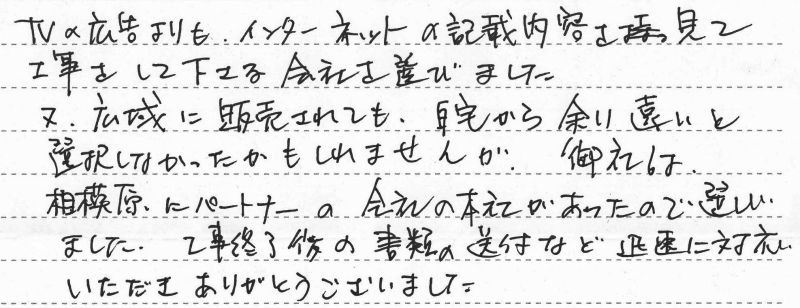 TVの広告よりも、インターネットの記載内容を見て
工事をして下さる会社を選びました
又、広域に販売されても、自宅から余り遠いと
選択しなかったかもしれませんが、御社は、
相模原にパートナーの会社の本社があったので選しい
ました。工事終了後の書類の送付など迅速に対応
いただきありがとうございました